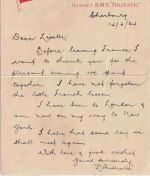 On board R.M.S "MAJESTIC"
Cherbourg
14/3/24
Dear Lisette,
Before leaving France I
want to thank you for the
pleasant evening we spent
together. I have not forgotten
the little French lesson
I have been to London &
am now on my way to New
York.
I hope that some day we
shall meet again.
With love & good wishes
Yours sincerely